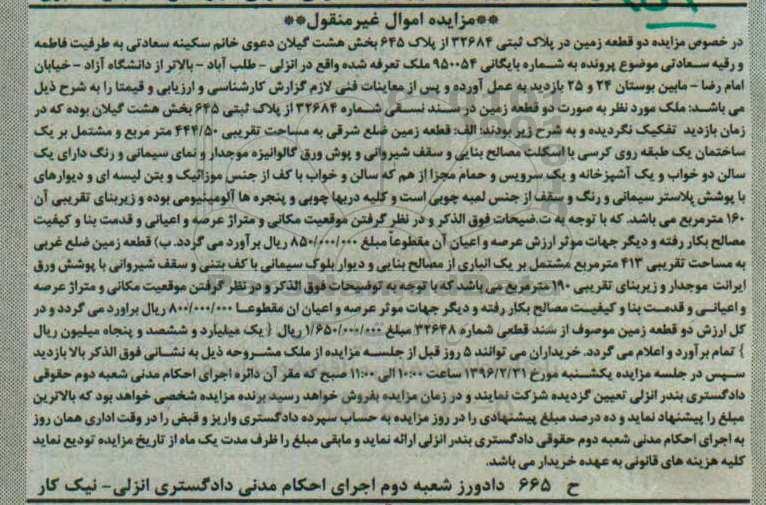 **مزایده اموال غیرمنقول**
در خصوص مزایده دو قطعه زمین در پلاک ثبتی ۳۲۶۸۴ از پلاک ۶۴۵ بخش هشت گیلان دعوی خانم سکینه سعادتی به طرفیت فاطمه
و رقیه سعادتی موضوع پرونده به شماره بایگانی ۹۵۰۰۵۴ ملک تعرفه شده واقع در انزلی - طلب آباد - بالاتر از دانشگاه آزاد - خیابان
امام رضا - مابین بوستان ۲۴ و ۲۵ بازدید به عمل آورده و پس از معاینات فنی لازم گزارش کارشناسی و ارزیابی و قیمتا را به شرح ذیل
می باشد: ملک مورد نظر به صورت دو قطعه زمین در سند نسقی شماره ۳۲۶۸۴ از پلاک ثبتی ۶۴۵ بخش هشت گیلان بوده که در
زمان بازدید تفکیک نگردیده و به شرح زیر بودند: الف: قطعه زمین ضلع شرقی به مساحت تقریبی ۴۴۴/۵۰ متر مربع و مشتمل بر یک
ساختمان یک طبقه روی کرسی با اسکلت مصالح بنایی و سقف شیروانی و پوش ورق گالوانیزه موجدار و نمای سیمانی و رنگ دارای یک
سالن دو خواب و یک آشپزخانه و یک سرویس و حمام مجزا از هم که سالن و خواب با کف از جنس موزائیک و بتن لیسه ای و دیوارهای
با پوشش پلاستر سیمانی و رنگ و سقف از جنس لمبه چوبی است و کلیه دربها چوبی و پنجره ها آلومینیومی بوده و زیربنای تقریبی آن
۱۶۰ مترمربع می باشد. که با توجه به ت.ضیحات فوق الذکر و در نظر گرفتن موقعیت مکانی و متراژ عرصه و اعیانی و قدمت بنا و کیفیت
مصالح بکار رفته و دیگر جهات موثر ارزش عرصه و اعیان آن مقطوعاً مبلغ ۸۵۰/۰۰۰/۰۰۰ ریال برآورد می گردد. ب) قطعه زمین ضلع غربی
به مساحت تقریبی ۴۱۳ مترمربع مشتمل بر یک انباری از مصالح بنایی و دیوار بلوک سیمانی با کف بتنی و سقف شیروانی با پوشش ورق
ایرانت موجدار و زیربنای تقریبی ۱۹۰ مترمربع می باشد که با توجه به توضیحات فوق الذکر و در نظر گرفتن موقعیت مکانی و متراژ عرصه
و اعیانی و قدمت بنا و کیفیت مصالح بکار رفته و دیگر جهات موثر عرصه و اعیان ان مقطوعا ۸۰۰/۰۰۰/۰۰۰ ریال براورد می گردد و در
کل ارزش دو قطعه زمین موصوف از سند قطعی شماره ۳۲۶۴۸ مبلغ ۱/۶۵۰/۰۰۰/۰۰۰ ریال { یک میلیارد و ششصد و پنجاه میلیون ریال
} تمام برآورد و اعلام می گردد. خریداران می توانند ۵ روز قبل از جلسه مزایده از ملک مشروحه ذیل به نشانی فوق الذکر بالا بازدید
سپس در جلسه مزایده یکشنبه مورخ ۱۳۹۶/۲/۳۱ ساعت ۱۰:۰۰ الی ۱۱:۰۰ صبح که مقر آن دائره اجرای احکام مدنی شعبه دوم حقوقی
دادگستری بندر انزلی تعیین گردیده شرکت نمایند و در زمان مزایده بفروش خواهد رسید برنده مزایده شخصی خواهد بود که بالاترین
مبلغ را پیشنهاد نماید و ده درصد مبلغ پیشنهادی را در روز مزایده به حساب سپرده دادگستری واریز و قبض را در وقت اداری همان روز
به اجرای احکام مدنی شعبه دوم حقوقی دادگستری بندر انزلی ارائه نماید و مابقی مبلغ را ظرف مدت یک ماه از تاریخ مزایده تودیع نماید
کلیه هزینه های قانونی به عهده خریدار می باشد.
ح ۶۶۵ دادورز شعبه دوم اجرای احکام مدنی دادگستری انزلی - نیک کار